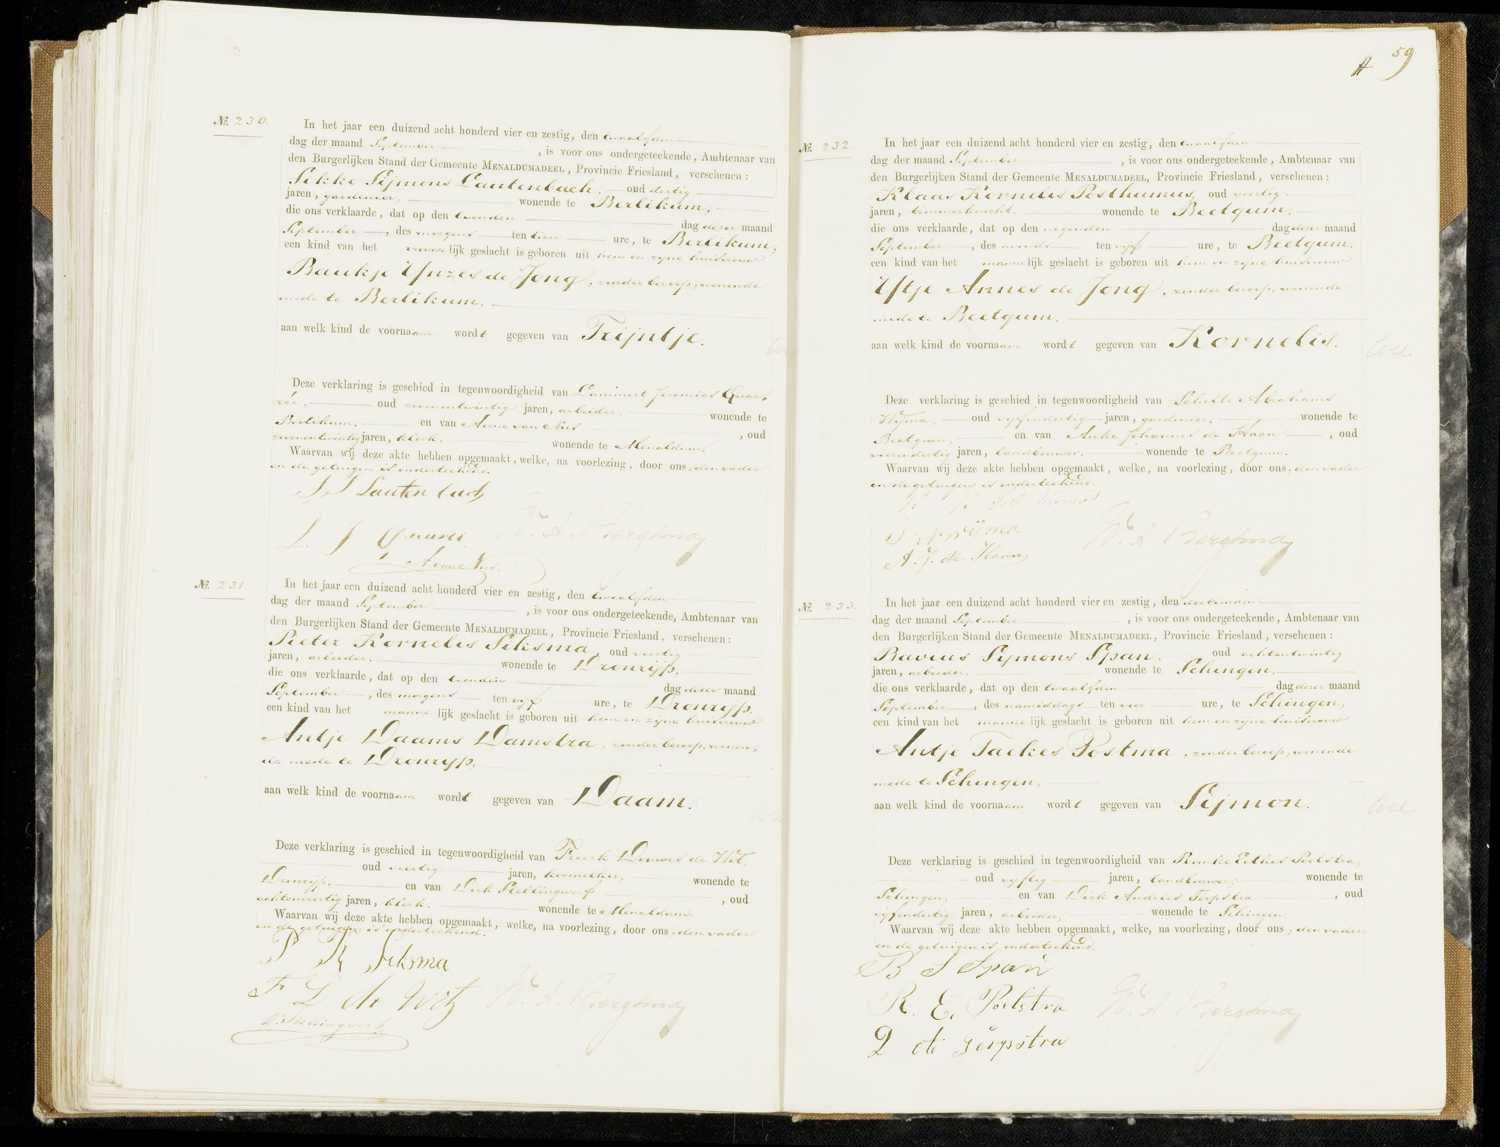 № 230.
In het jaar een duizend acht honderd vier en zestig, den twaalfden
dag der maand September, is voor ons ondergeteekende, Ambtenaar van
den Burgerlijken Stand der Gemeente MENALDUMADEEL, Provincie Friesland, verschenen:
Sikke Sijmons Lautenbach, oud dertig
jaren, gardenier, wonende te Berlikum,
die ons verklaarde, dat op den tienden dag dezer maand
September, des morgens ten twee ure, te Berlikum,
een kind van het vrouwelijk geslacht is geboren uit hem en zijne huisvrouw
Baukje IJnzes de Jong, zonder beroep, wonende
mede te Berlikum.
aan welk kind de voornaam wordt gegeven van Trijntje.
Deze verklaring is geschied in tegenwoordigheid van Lammert Jeremias
oud jaren, arbeider, wonende te
Berlikum, en van Anne van Nes, oud
jaren, klerk, wonende te Menaldum.
Waarvan wij deze akte hebben opgemaakt, welke, na voorlezing, door ons, den vader
en de getuigen is onderteekend.
S S Lautenbach
L. J.
W. A. Bergsma
№ 231
In het jaar een duizend acht honderd vier en zestig, den twaalfden
dag der maand September, is voor ons ondergeteekende, Ambtenaar van
den Burgerlijken Stand der Gemeente MENALDUMADEEL, Provincie Friesland, verschenen:
Pieter Kornelis Siksma, oud veertig
jaren, arbeider, wonende te Dronrijp,
die ons verklaarde, dat op den tienden dag dezer maand
September, des morgens ten vijf ure, te Dronrijp,
een kind van het mannelijk geslacht is geboren uit hem en zijne huisvrouw
Antje Daams Damstra, zonder beroep, wonen-
de mede te Dronrijp.
aan welk kind de voornaam wordt gegeven van Daam.
Deze verklaring is geschied in tegenwoordigheid van Freerk Douwes de Wit,
oud veertig jaren, wonende te
Dronrijp, en van Dirk Stellingwerf, oud
achtenveertig jaren, klerk, wonende te Menaldum.
Waarvan wij deze akte hebben opgemaakt, welke, na voorlezing, door ons, den vader
en de getuigen is onderteekend.
P K Siksma
F D de Wit
W. A. Bergsma
D. Stellingwerf
59
№ 232
In het jaar een duizend acht honderd vier en zestig, den twaalfden
dag der maand September, is voor ons ondergeteekende, Ambtenaar van
den Burgerlijken Stand der Gemeente MENALDUMADEEL, Provincie Friesland, verschenen:
Klaas Kornelis Posthumus, oud veertig
jaren, timmerknecht, wonende te Beetgum,
die ons verklaarde, dat op den negenden dag dezer maand
September, des avonds ten vijf ure, te Beetgum,
een kind van het mannelijk geslacht is geboren uit hem en zijne huisvrouw
IJtje Annes de Jong, zonder beroep, wonende
mede te Beetgum.
aan welk kind de voornaam wordt gegeven van Kornelis.
Deze verklaring is geschied in tegenwoordigheid van Abrahams
oud vijfendertig jaren, gardenier, wonende te
Beetgum, en van Auke Johannes de Haan, oud
jaren, landbouwer, wonende te Beetgum.
Waarvan wij deze akte hebben opgemaakt, welke, na voorlezing, door ons, den vader
en de getuigen is onderteekend.
A. J. de Haan
W. A. Bergsma
№ 233.
In het jaar een duizend acht honderd vier en zestig, den
dag der maand September, is voor ons ondergeteekende, Ambtenaar van
den Burgerlijken Stand der Gemeente MENALDUMADEEL, Provincie Friesland, verschenen:
Bavius Sijmons Span, oud achtentwintig
jaren, arbeider, wonende te Schingen,
die ons verklaarde, dat op den twaalfden dag dezer maand
September, des namiddags ten ure, te Schingen,
een kind van het mannelijk geslacht is geboren uit hem en zijne huisvrouw
Antje Taekes Postma, zonder beroep, wonende
mede te Schingen.
aan welk kind de voornaam wordt gegeven van Sijmon.
Deze verklaring is geschied in tegenwoordigheid van Romke Eelkes Poelstra,
oud vijftig jaren, landbouwer, wonende te
Schingen, en van Dirk Andries Terpstra, oud
vijfendertig jaren, arbeider, wonende te Schingen.
Waarvan wij deze akte hebben opgemaakt, welke, na voorlezing, door ons, den vader
en de getuigen is onderteekend.
B S Span
R. E. Poelstra
W. A. Bergsma